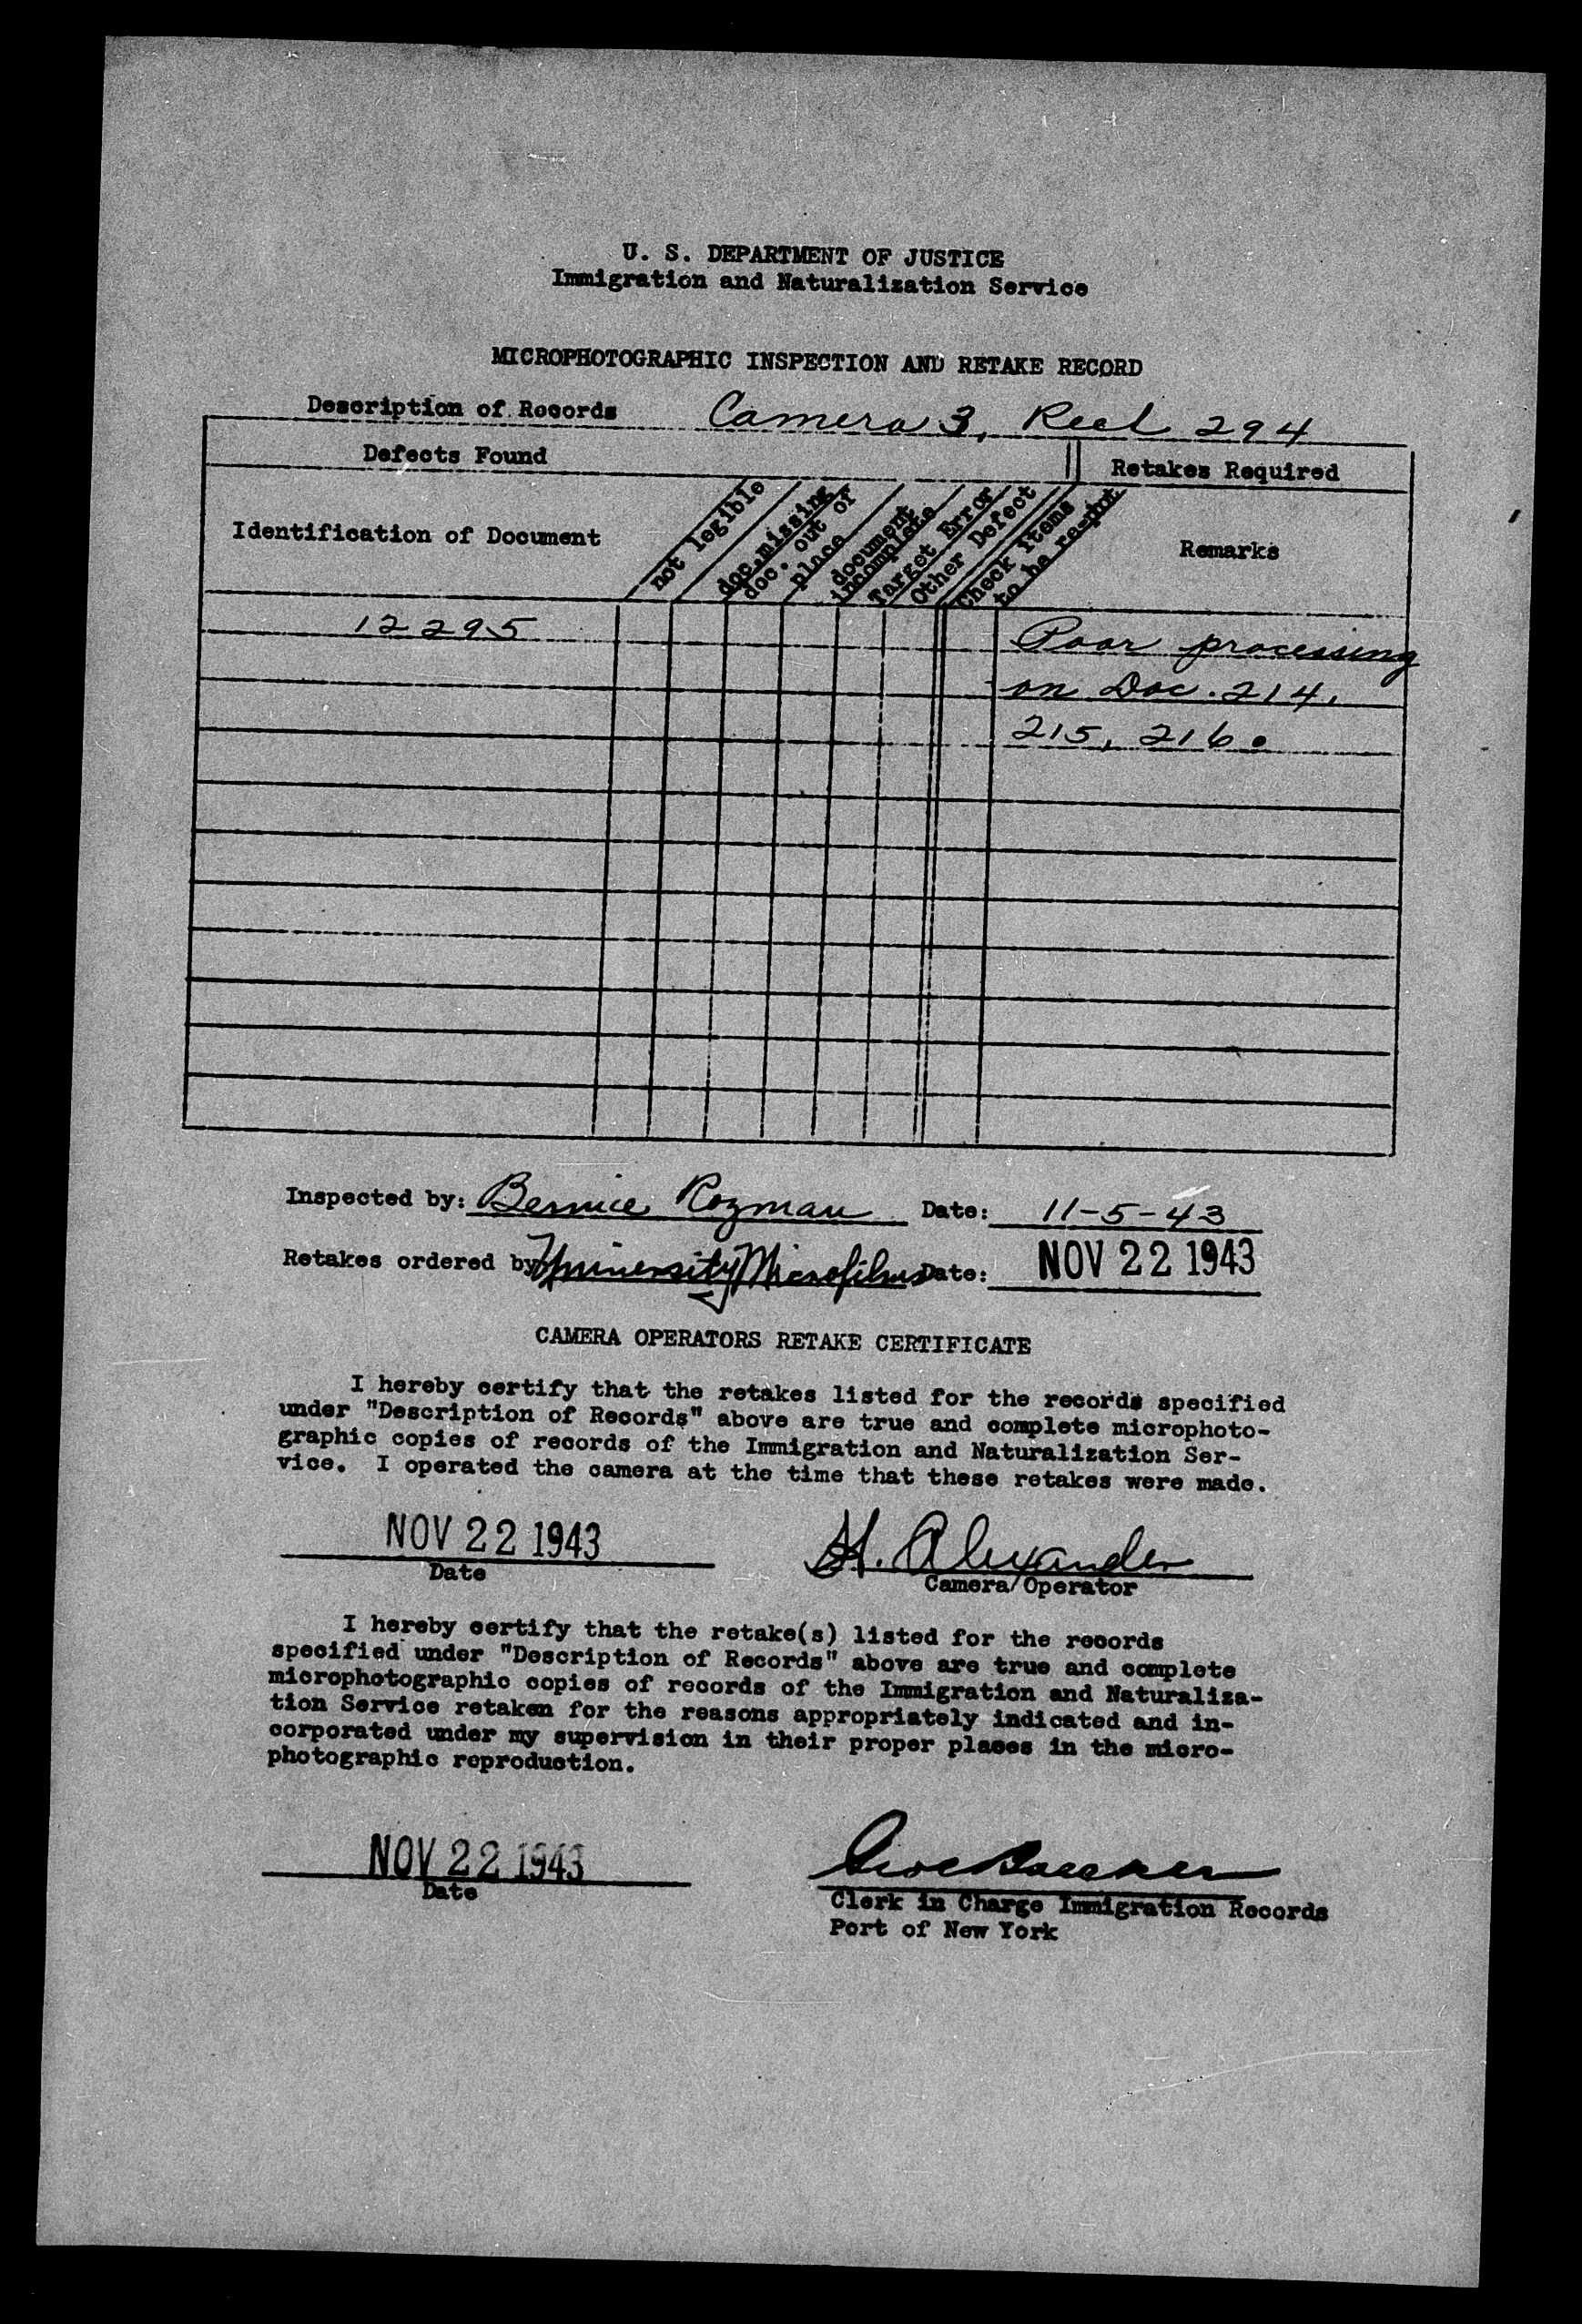 U. S. DEPARTMENT OF JUSTICE
Immigration and Naturalization Service
MICROPHOTOGRAPHIC INSPECTION AND RETAKE RECORD
Description of Records Camera 3, Reel 294
Defects Found
Retakes Required
Identification of Document
not legible
doc. missing
doc. out of
place
document
incomplete
Target Error
Other Defect
Check items
to be re-pho
Remarks
12295
Poor processing
on Doc. 214,
215, 216.
Inspected by: Bernice Rozman Date: 11-5-43
Retakes ordered by University Microfilms Date: NOV 22 1943
CAMERA OPERATORS RETAKE CERTIFICATE
I hereby certify that the retakes listed for the records specified
under "Description of Records" above are true and complete microphoto-
graphic copies of records of the Immigration and Naturalization Ser-
vice. I operated the camera at the time that these retakes were made.
NOV 22 1943
H. Alexander
Date
Camera Operator
I hereby certify that the retake(s) listed for the records
specified under "Description of Records" above are true and complete
microphotographic copies of records of the Immigration and Naturaliza-
tion Service retaken for the reasons appropriately indicated and in-
corporated under my supervision in their proper places in the micro-
photographic reproduction.
NOV 22 1943
Date
Clerk in Charge Immigration Records
Port of New York